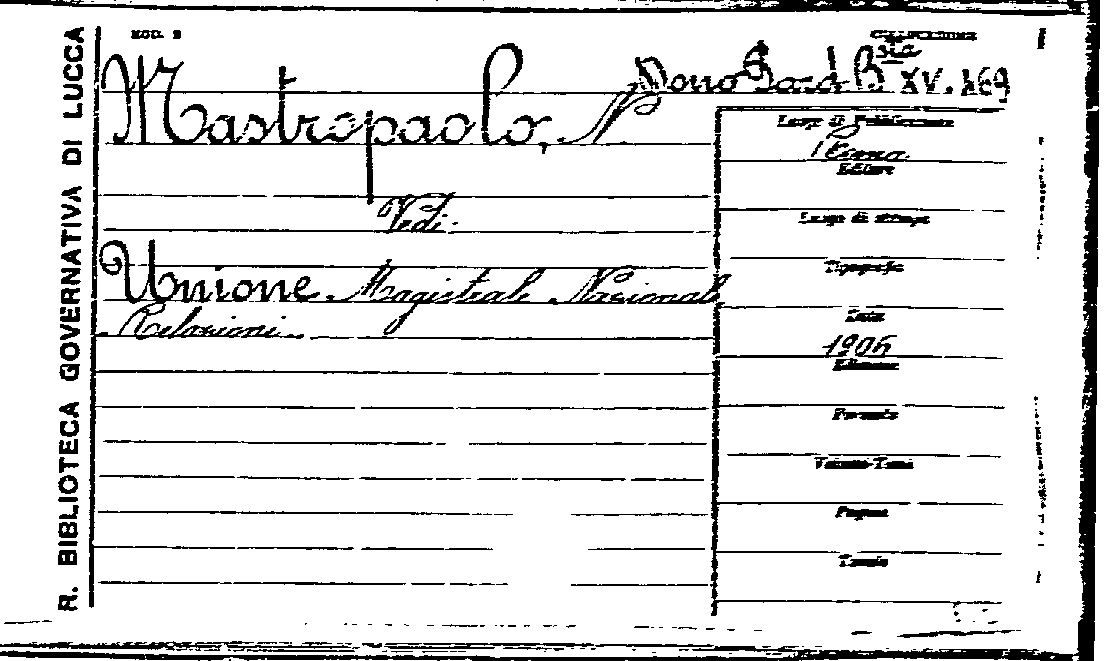 R. BIBLIOTECA GOVERNATIVA DI LUCCA
MOD. 2
COLLOCAZIONE
Mastropaolo, N
XV. 169
Luogo di Pubblicazione
Roma
Editore
Vedi:
Luogo di stampa
Unione Magistrale Nazionale
Tipografia
Relazioni
Data
1906
Edizione
Formato
Volume-Tomi
Pagine
Tavole